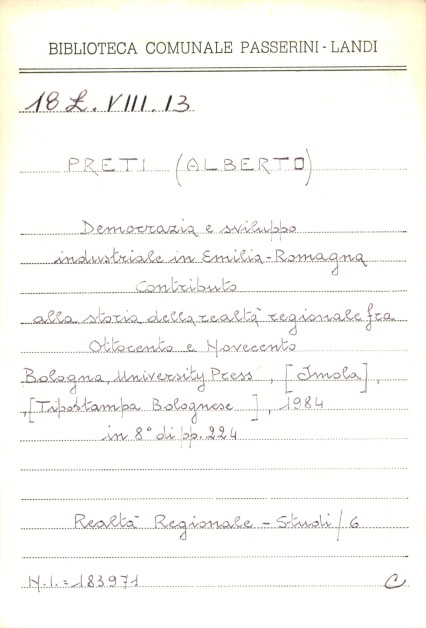 BIBLIOTECA COMUNALE PASSERINI - LANDI
18 L. VIII. 13
PRETI (ALBERTO)
Democrazia e sviluppo
industriale in Emilia-Romagna
Contributo
alla storia della realtà regionale fra
Ottocento e Novecento
Bologna, University Press, [Imola],
,[Tipostampa Bolognese ], 1984
in 8° di pp. 224
Realtà Regionale - Studi / 6
N.I. = 183971
C